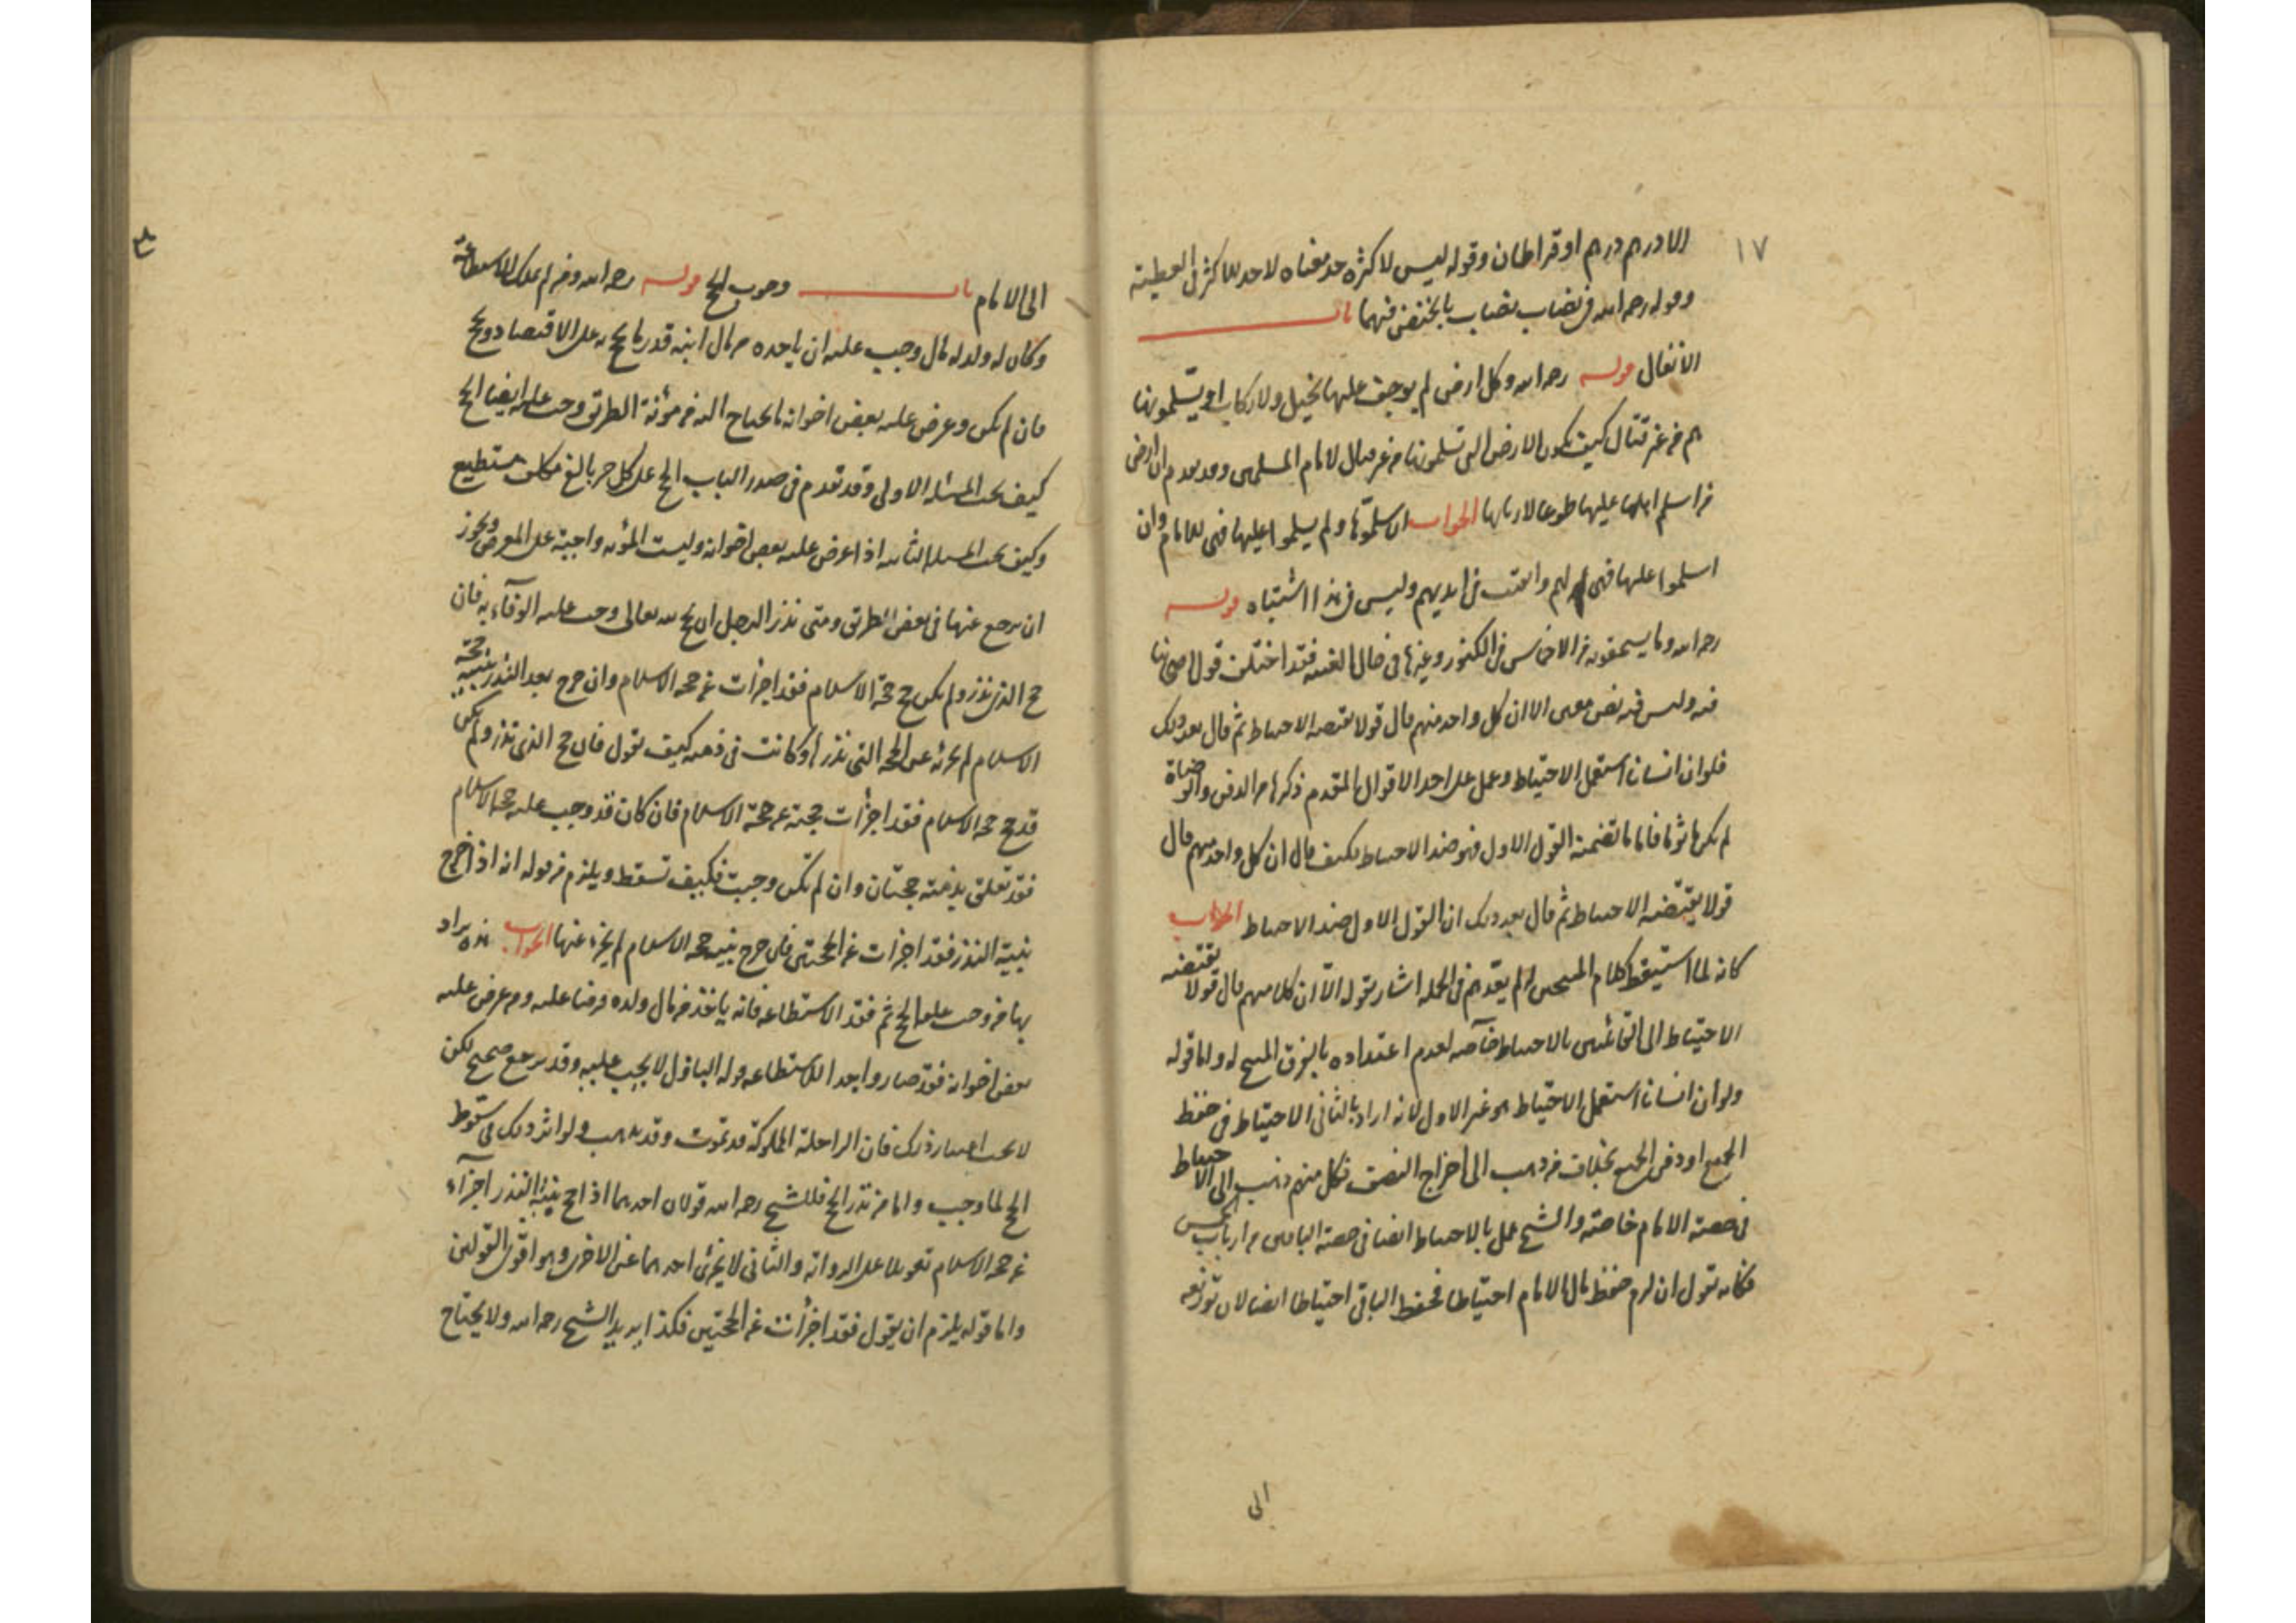 ١٧
الا درهم درهم او قراطان وقوله ليس لاكثره حد معناه لا حد للاكثر في العطية
وقوله رحمه الله في نصاب نصاب ما يختص فيهما باب
الانفال قوله رحمه الله وكل ارض لم يوجف عليها بخيل ولا ركاب او يسلمونها
هم من غير قتال كيف تكون الارض التي تسلمونها من غير قتال لامام المسلمين وقد تقدم ان ارض
من اسلم اهلها عليها طوعا لاربابها الجواب ان سلموها ولم يسلموا عليها فهي للامام وان
اسلموا عليها فهي لهم وابقيت في ايديهم وليس في هذا اشتباه قوله
رحمه الله وما يستحقونه من الاخماس في الكنوز وغيرها في حال الغيبة فقد اختلف قول اصحابنا
فيه وليس فيه نص معين الا ان كل واحد منهم قال قولا يقتضيه الاحتياط ثم قال بعد ذلك
فلو ان انسانا استعمل الاحتياط وعمل على احد الاقوال المتقدم ذكرها من الدفن والوصاة
لم يكن ماثوما فاما ما تضمنه القول الاول فهو ضد الاحتياط فكيف قال ان كل واحد منهم قال
قولا يقتضيه الاحتياط ثم قال بعد ذلك ان القول الاول ضد الاحتياط الجواب
كانه لما استسقط كلام المبيحين لم يعده في الجملة اشار بقوله الا ان كلا منهم قال قولا يقتضيه
الاحتياط الى القائلين بالاحتياط خاصة لعدم اعتداده بالفرق المبيح له واما قوله
ولو ان انسانا استعمل الاحتياط هو غير الاول لانه اراد بالثاني الاحتياط في حفظ
الجميع او دفن الجميع بخلاف من ذهب الى اخراج النصف فكل منهم ذهب الى الاحتياط
في حصة الامام خاصة والشيخ عمل بالاحتياط ايضا في حصة الباقين من ارباب الخمس
فكانه يقول ان لزم حفظ مال الامام احتياطا فحفظ الباقي احتياطا ايضا لان توزيعه
الى
الى الامام باب وجوب الحج قوله رحمه الله ومن لم يملك الاستطاعة
وكان له ولد له مال وجب عليه ان ياخذه من مال ابنه قدر ما يحج به على الاقتصاد ويحج
فان لم يكن وعرض عليه بعض اخوانه ما يحتاج اليه من مؤنة الطريق وجب عليه ايضا الحج
كيف يجب المسئلة الاولى وقد تقدم في صدر الباب الحج على كل حر بالغ مكلف مستطيع
وكيف يجب المسئلة الثانية اذا عرض عليه بعض اخوانه وليست المؤنة واجبة على المعرض ويجوز
ان يرجع عنها في بعض الطريق ومتى نذر الرجل ان يحج لله تعالى وجب عليه الوفاء به فان
حج الذي نذر ولم يكن حج حجة الاسلام فقد اجزأت عن حجة الاسلام وان خرج بعد النذر بنية حجة
الاسلام لم يجزئه عن الحجة التي نذرها وكانت في ذمته كيف يقول فان حج الذي نذر ولم يكن
قد حج حجة الاسلام فقد اجزأت حجته عن حجة الاسلام فان كان قد وجب عليه حجة الاسلام
فقد تعلق بذمته حجتان وان لم تكن وجبت فكيف تسقط ويلزم من قوله انه اذا خرج
بنية النذر فقد اجزأت عن الحجتين فان خرج بنية حجة الاسلام لم يجزء عنها الجواب هذه يراد
بها من وجب عليه الحج ثم فقد الاستطاعة فانه ياخذ من مال ولده قرضا عليه ومن عرض عليه
بعض اخوانه فقد صار واجد الاستطاعة قوله الباذل لا يجب عليه وقد يرجع صحيح لكن
لا يجب اعتبار ذلك فان الراحلة المملوكة قد تموت وقد يذهب ولو اثر ذلك في سقوط
الحج لما وجب واما من نذر الحج فللشيخ رحمه الله قولان احدهما اذا حج بنية النذر اجزاء
عن حجة الاسلام تعويلا على الرواية والثاني لا يجزئ احدهما عن الاخرى وهو اقوى القولين
واما قوله يلزم ان يقول فقد اجزأت عن الحجتين فكذا يريد الشيخ رحمه الله ولا يحتاج